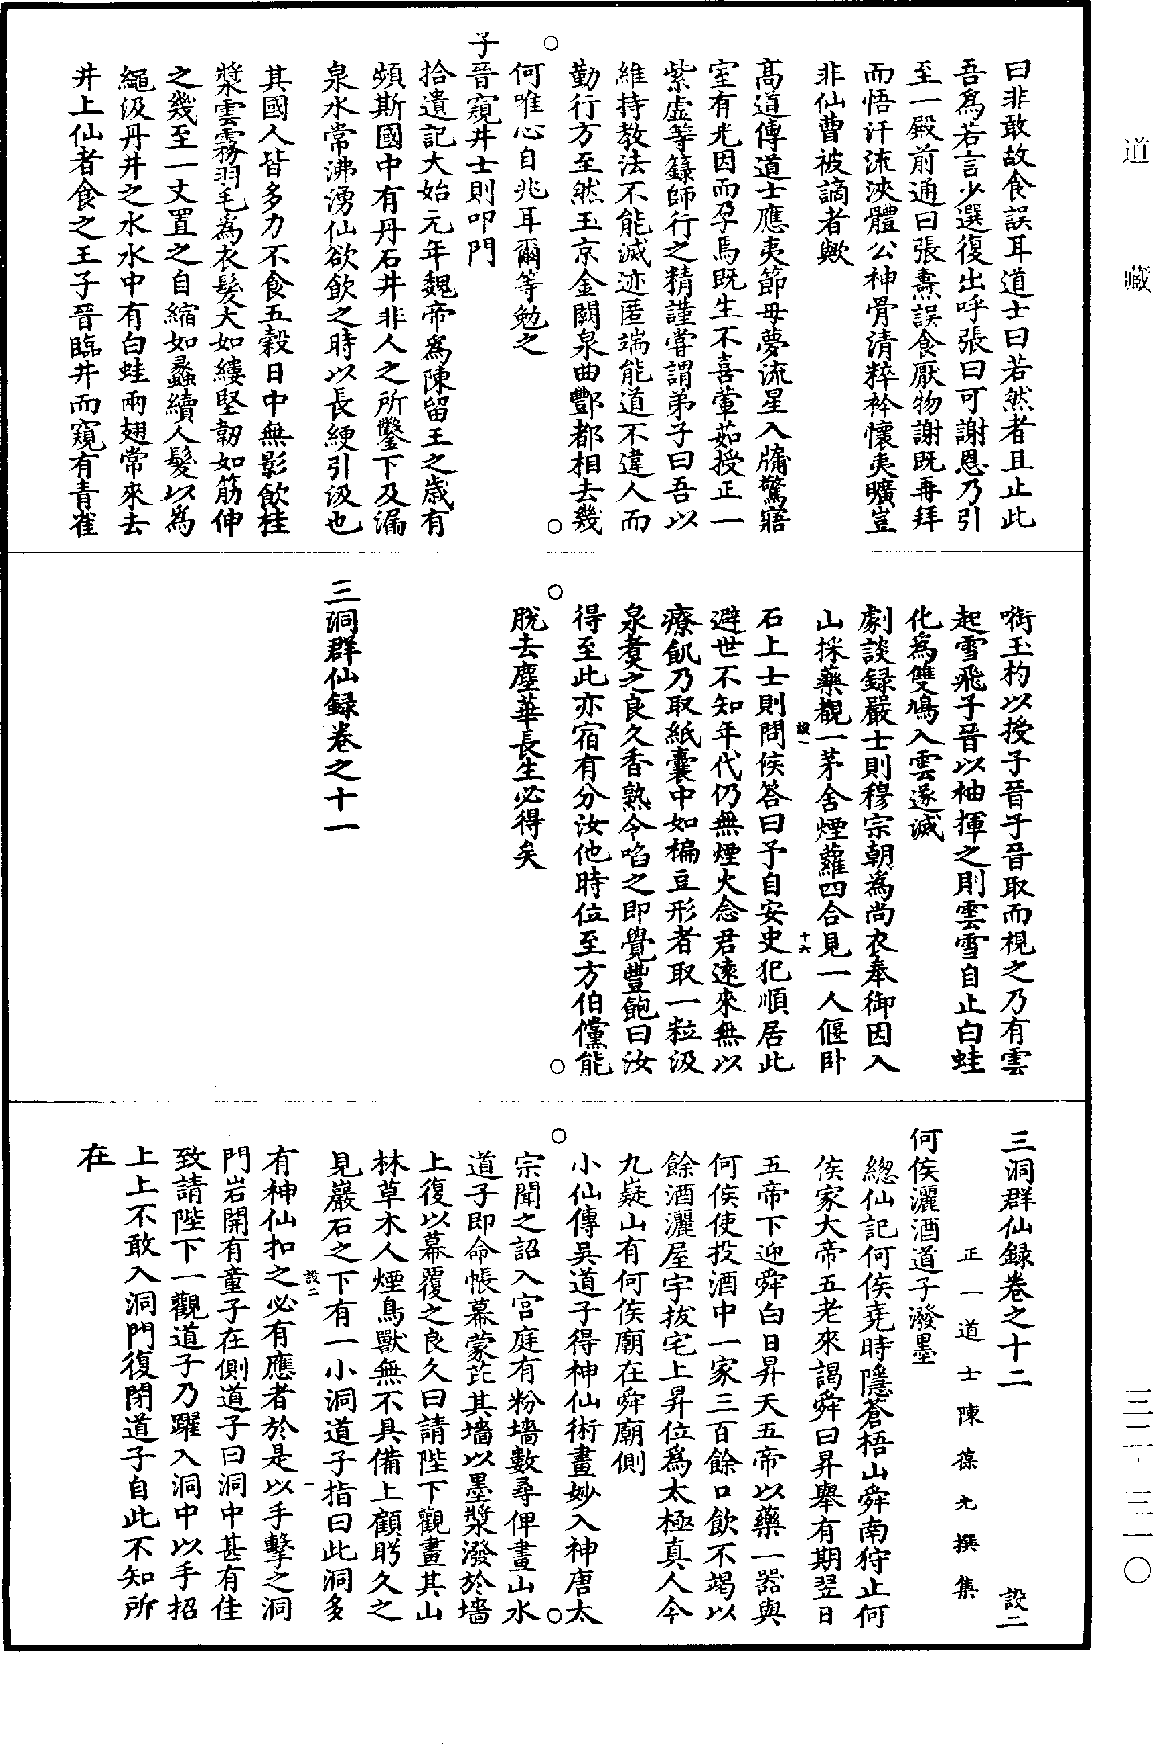 道藏
三二·三一〇
曰非敢故食誤耳道士曰若然者且止此
吾爲若言少選復出呼張曰可謝恩乃引
至一殿前通曰張燾誤食厭物謝既再拜
而悟汗流浹體公神骨清粹衿懷夷曠豈
非仙曹被謫者歟
高道傳道士應夷節母夢流星入牖驚寤
室有光因而孕焉既生不喜葷茹授正一
紫虛等籙師行之精謹嘗謂弟子曰吾以
維持教法不能滅迹匿端能道不違人而
勤行方至然玉京金闕泉曲酆都相去幾
何唯心自兆耳爾等勉之
子晉窺井士則叩門
拾遺記大始元年魏帝爲陳留王之歲有
頻斯國中有丹石井非人之所鑿下及漏
泉水常沸湧仙欲飲之時以長綆引汲也
其國人皆多力不食五穀日中無影飲桂
漿雲霧羽毛爲衣髮大如縷堅韌如筋伸
之幾至一丈置之自縮如蠡續人髮以爲
繩汲丹井之水水中有白蛙兩翅常來去
井上仙者食之王子晉臨井而窺有青雀
㗸玉杓以授子晉子晉取而視之乃有雲
起雪飛子晉以袖揮之則雲雪自止白蛙
化爲雙鳩入雲遂滅
劇談録嚴士則穆宗朝爲尚衣奉御因入
山採藥觀一茅舍煙蘿四合見一人偃卧
設一
十六
石上士則問侯答曰予自安史犯順居此
避世不知年代仍無煙火念君遠來無以
療飢乃取紙囊中如楄豆形者取一粒汲
泉煑之良久香熟令啗之即覺豐飽曰汝
得至此亦宿有分汝他時位至方伯儻能
脫去塵華長生必得矣
三洞群仙録卷之十一
三洞群仙録卷之十二
設二
正一道士陳葆光撰集
何侯灑酒道子潑墨
總仙記何侯堯時隱蒼梧山舜南狩止何
侯家大帝五老來謁舜曰昇舉有期翌日
五帝下迎舜白日昇天五帝以藥一器與
何侯使投酒中一家三百餘口飲不竭以
餘酒灑屋宇拔宅上昇位爲太極真人今
九嶷山有何侯廟在舜廟側
小仙傳吳道子得神仙術畫妙入神唐太
宗聞之詔入宮庭有粉墻數尋俾畫山水
道子即命帳幕蒙茈其墻以墨漿潑於墻
上復以幕覆之良久曰請陛下觀畫其山
林草木人煙鳥獸無不具備上顧眄久之
見巖石之下有一小洞道子指曰此洞多
設二
一
有神仙扣之必有應者於是以手擊之洞
門岩開有童子在側道子曰洞中甚有佳
致請陛下一觀道子乃躍入洞中以手招
上上不敢入洞門復閉道子自此不知所
在